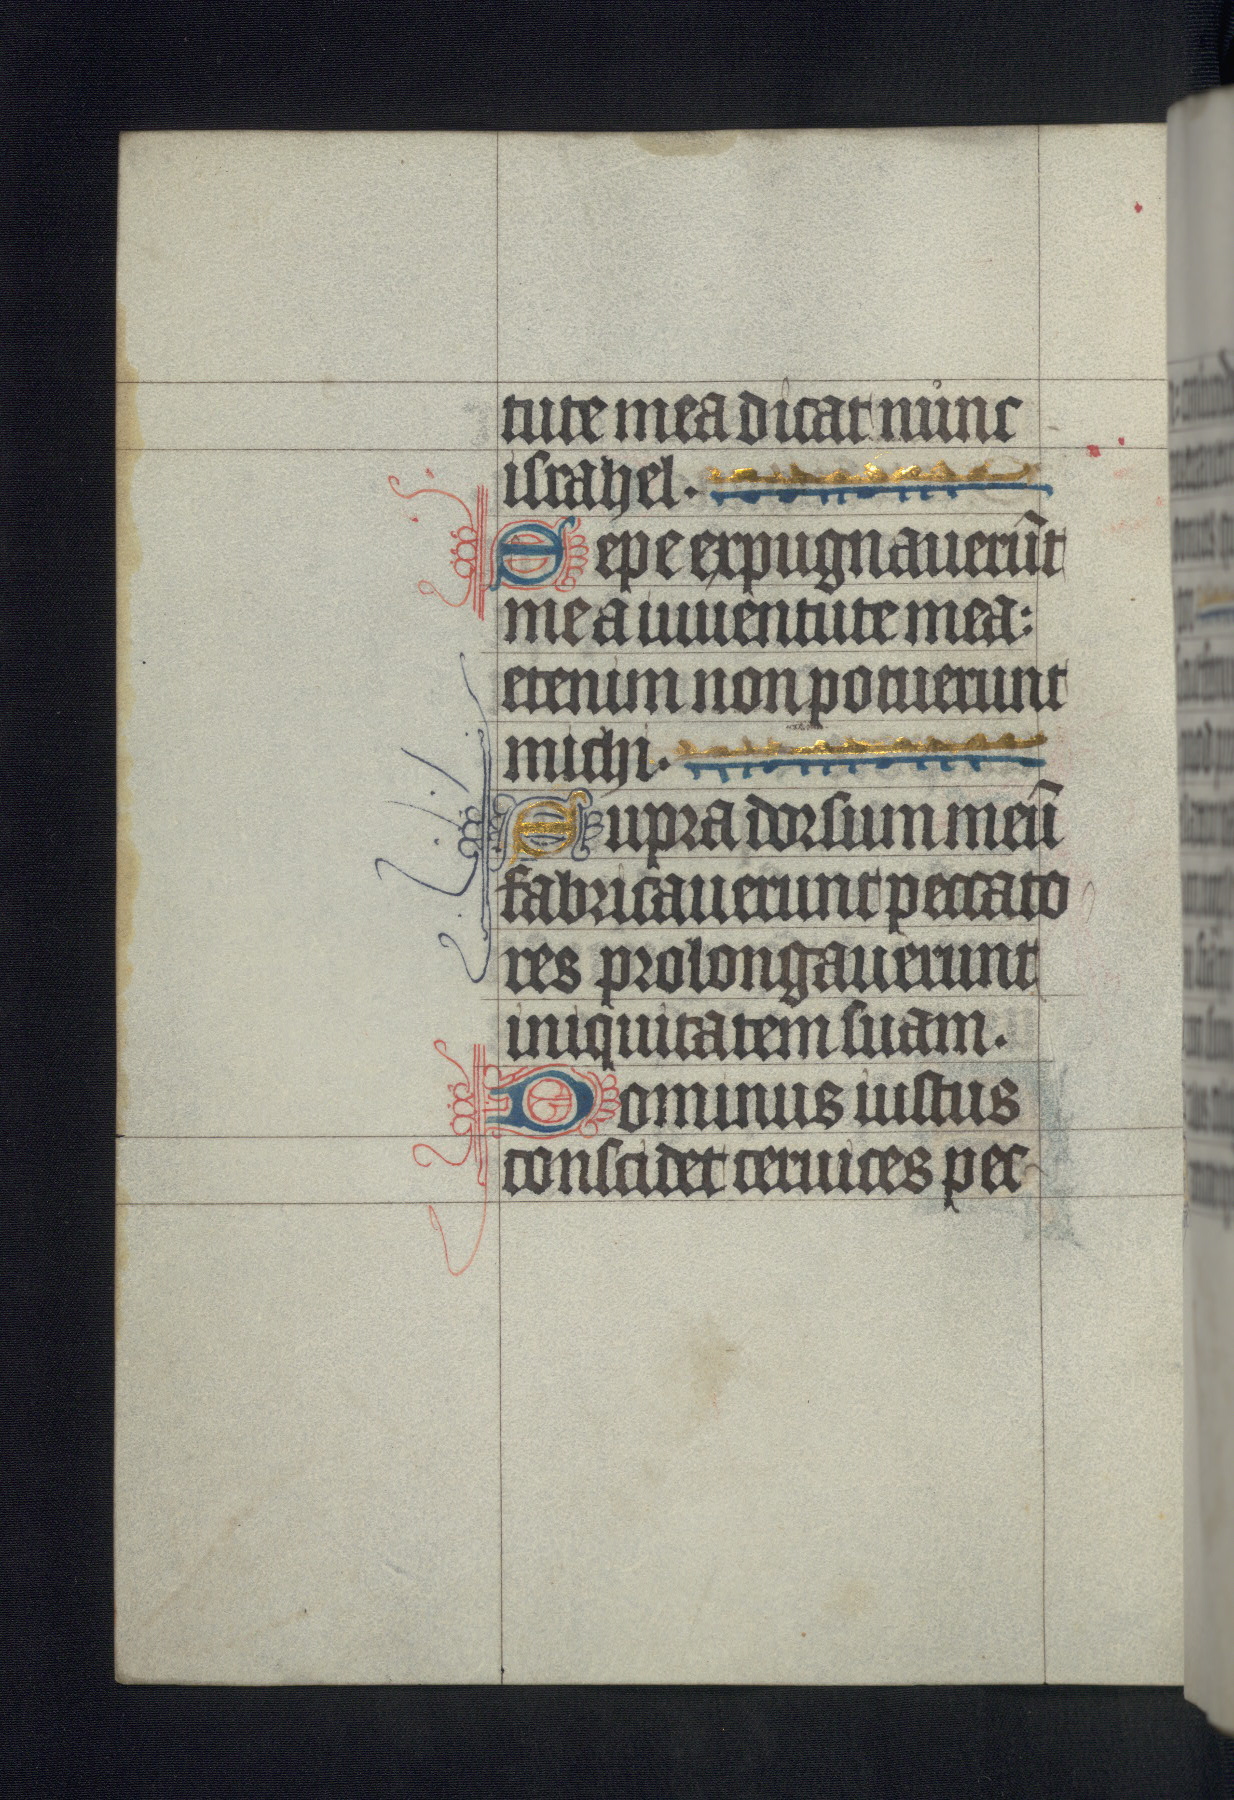 tute mea dicat nunc
israhel.
Sepe expugnauerūt
me a iuuentute mea:
etenim non potuerunt
michi.
Supra dorsum meū
fabricauerunt peccato
res prolongauerunt
iniquitatem suam.
Dominus iustus
conscidet ceruices pec